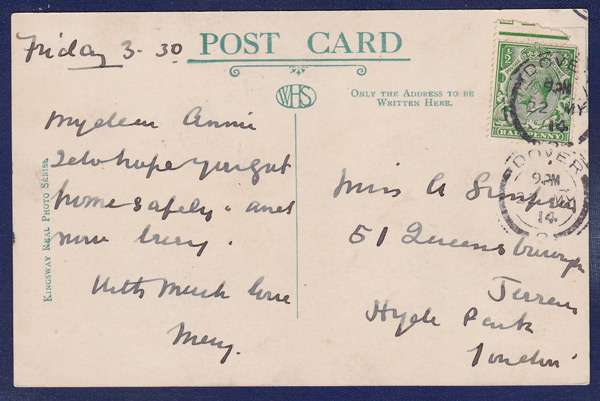 Friday 3-30
POST CARD
WHS
ONLY THE ADDRESS TO BE
WRITTEN HERE.
KINGSWAY REAL PHOTO SERIES.
My dear Annie
I do hope you got
home safely and
now
With much love
Mary.
Miss A
51 Queensborough
Terrace
Hyde Park
London
½
HALFPENNY
DOVER
9 PM
22 MY
14
DOVER
9 PM
MY
14